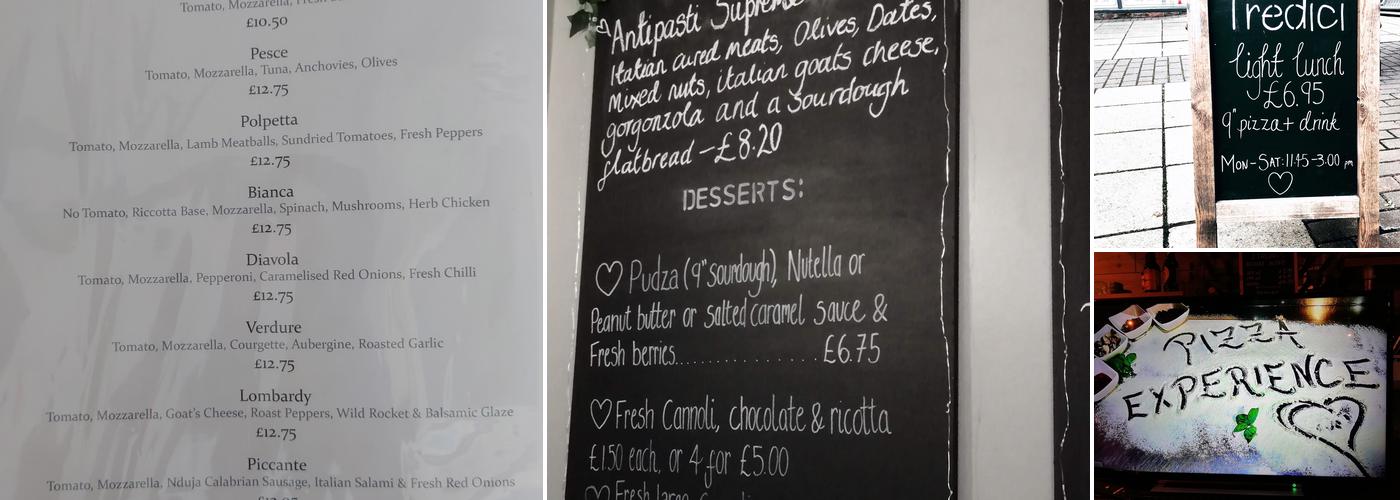 Tomato, Mozzarella, Fresh
£10.50
Pesce
Tomato, Mozzarella, Tuna, Anchovies, Olives
£12.75
Polpetta
Tomato, Mozzarella, Lamb Meatballs, Sundried Tomatoes, Fresh Peppers
£12.75
Bianca
No Tomato, Riccotta Base, Mozzarella, Spinach, Mushrooms, Herb Chicken
£12.75
Diavola
Tomato, Mozzarella, Pepperoni, Caramelised Red Onions, Fresh Chilli
£12.75
Verdure
Tomato, Mozzarella, Courgette, Aubergine, Roasted Garlic
£12.75
Lombardy
Tomato, Mozzarella, Goat's Cheese, Roast Peppers, Wild Rocket & Balsamic Glaze
£12.75
Piccante
Tomato, Mozzarella, Nduja Calabrian Sausage, Italian Salami & Fresh Red Onions
Antipasti Supreme
Italian cured meats, Olives, Dates,
Mixed nuts, italian goats cheese,
gorgonzola and a Sourdough
flatbread - £8.20
DESSERTS:
Pudza (9" sourdough), Nutella or
Peanut butter or salted caramel sauce &
Fresh berries.............£6.75
Fresh Cannoli, chocolate & ricotta
£1.50 each, or 4 for £5.00
Fresh large
Tredici
light lunch
£6.95
9" pizza + drink
MON-SAT: 11:45-3:00 pm
PIZZA
EXPERIENCE